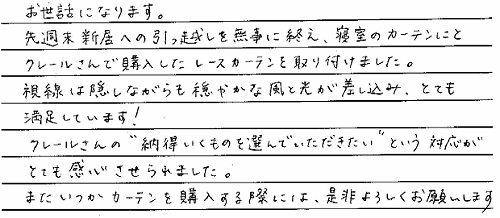 お世話になります。
先週末新居への引っ越しを無事に終え、寝室のカーテンにと
クレールさんで購入したレースカーテンを取り付けました。
視線は隠しながらも穏やかな風と光が差し込み、とても
満足しています!
クレールさんの"納得いくものを選んでいただきたい"という対応が
とても感心させられました。
またいつかカーテンを購入する際には、是非よろしくお願いします